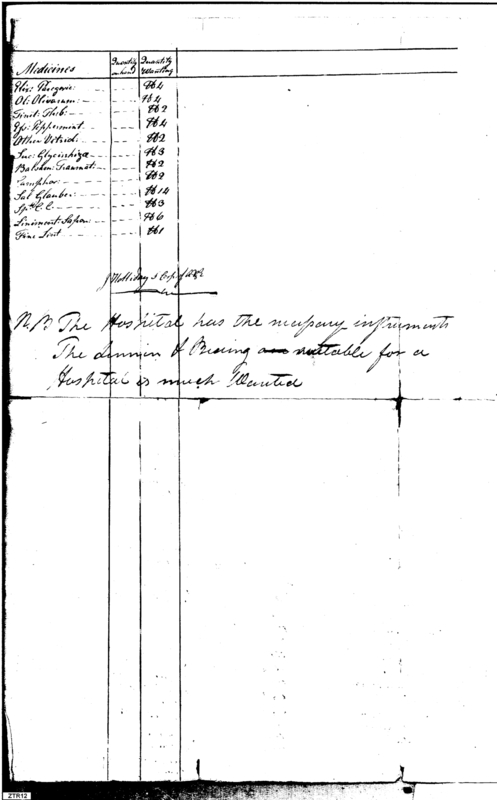 Medicines Quantity on hand Quantity Wanting
Elix: Paregoric: ℔4
Ol: Olivarum: ℔4
Tinct: Theb: ℔2
Ess: Peppermint ℔4
Æther Vitriol: ℔2
Suc: Glycirrhiza ℔3
Balsam: Traumat: ℔2
Camphor: ℔2
Sal Glauber: ℔14
Spt C. C. ℔3
Liniment: Sapon: ℔6
Fine Lint ℔1
J Holliday
N,B The Hospital has the nessesary instruments
The Linnin & Beding suitable for a
Hospital is much Wanted
ZTR12